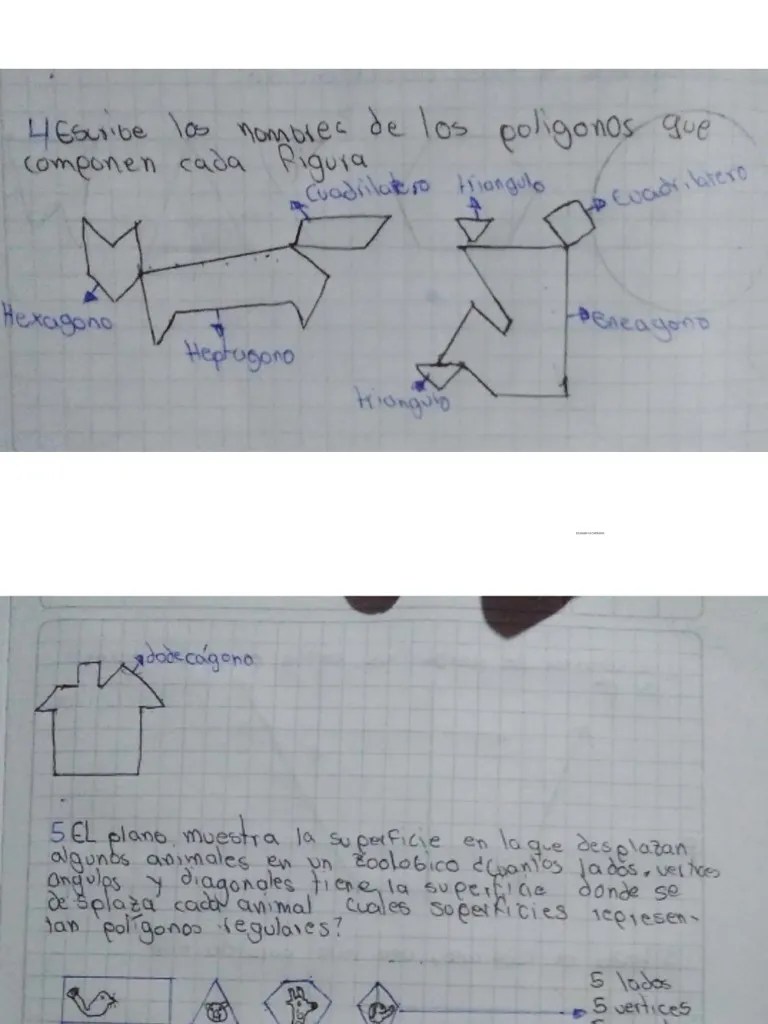 4 Escribe los nombres de los poligonos que
componen cada figura
Cuadrilatero
triangulo
Cuadrilatero
Hexagono
Heptagono
Eneagono
triangulo
dodecágono
5 EL plano muestra la superficie en la que desplazan
algunos animales en un zoolobico ¿Cuantos lados, vertices
angulos y diagonales tiene la superficie donde se
desplaza cada animal cuales superficies represen-
tan polígonos regulares?
5 lados
5 vertices